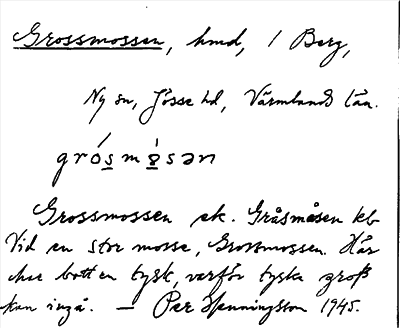 Grossmossen, hmd, 1 Berg,
Ny sn, Jösse hd, Värmlands län.
grósmòsən
Grossmossen ek. Gråsmåsen kb
Vid en stor mosse, Grossmossen. Här
har bott en tysk, varför tyska groß
kan ingå. — Per Henningsson 1945.